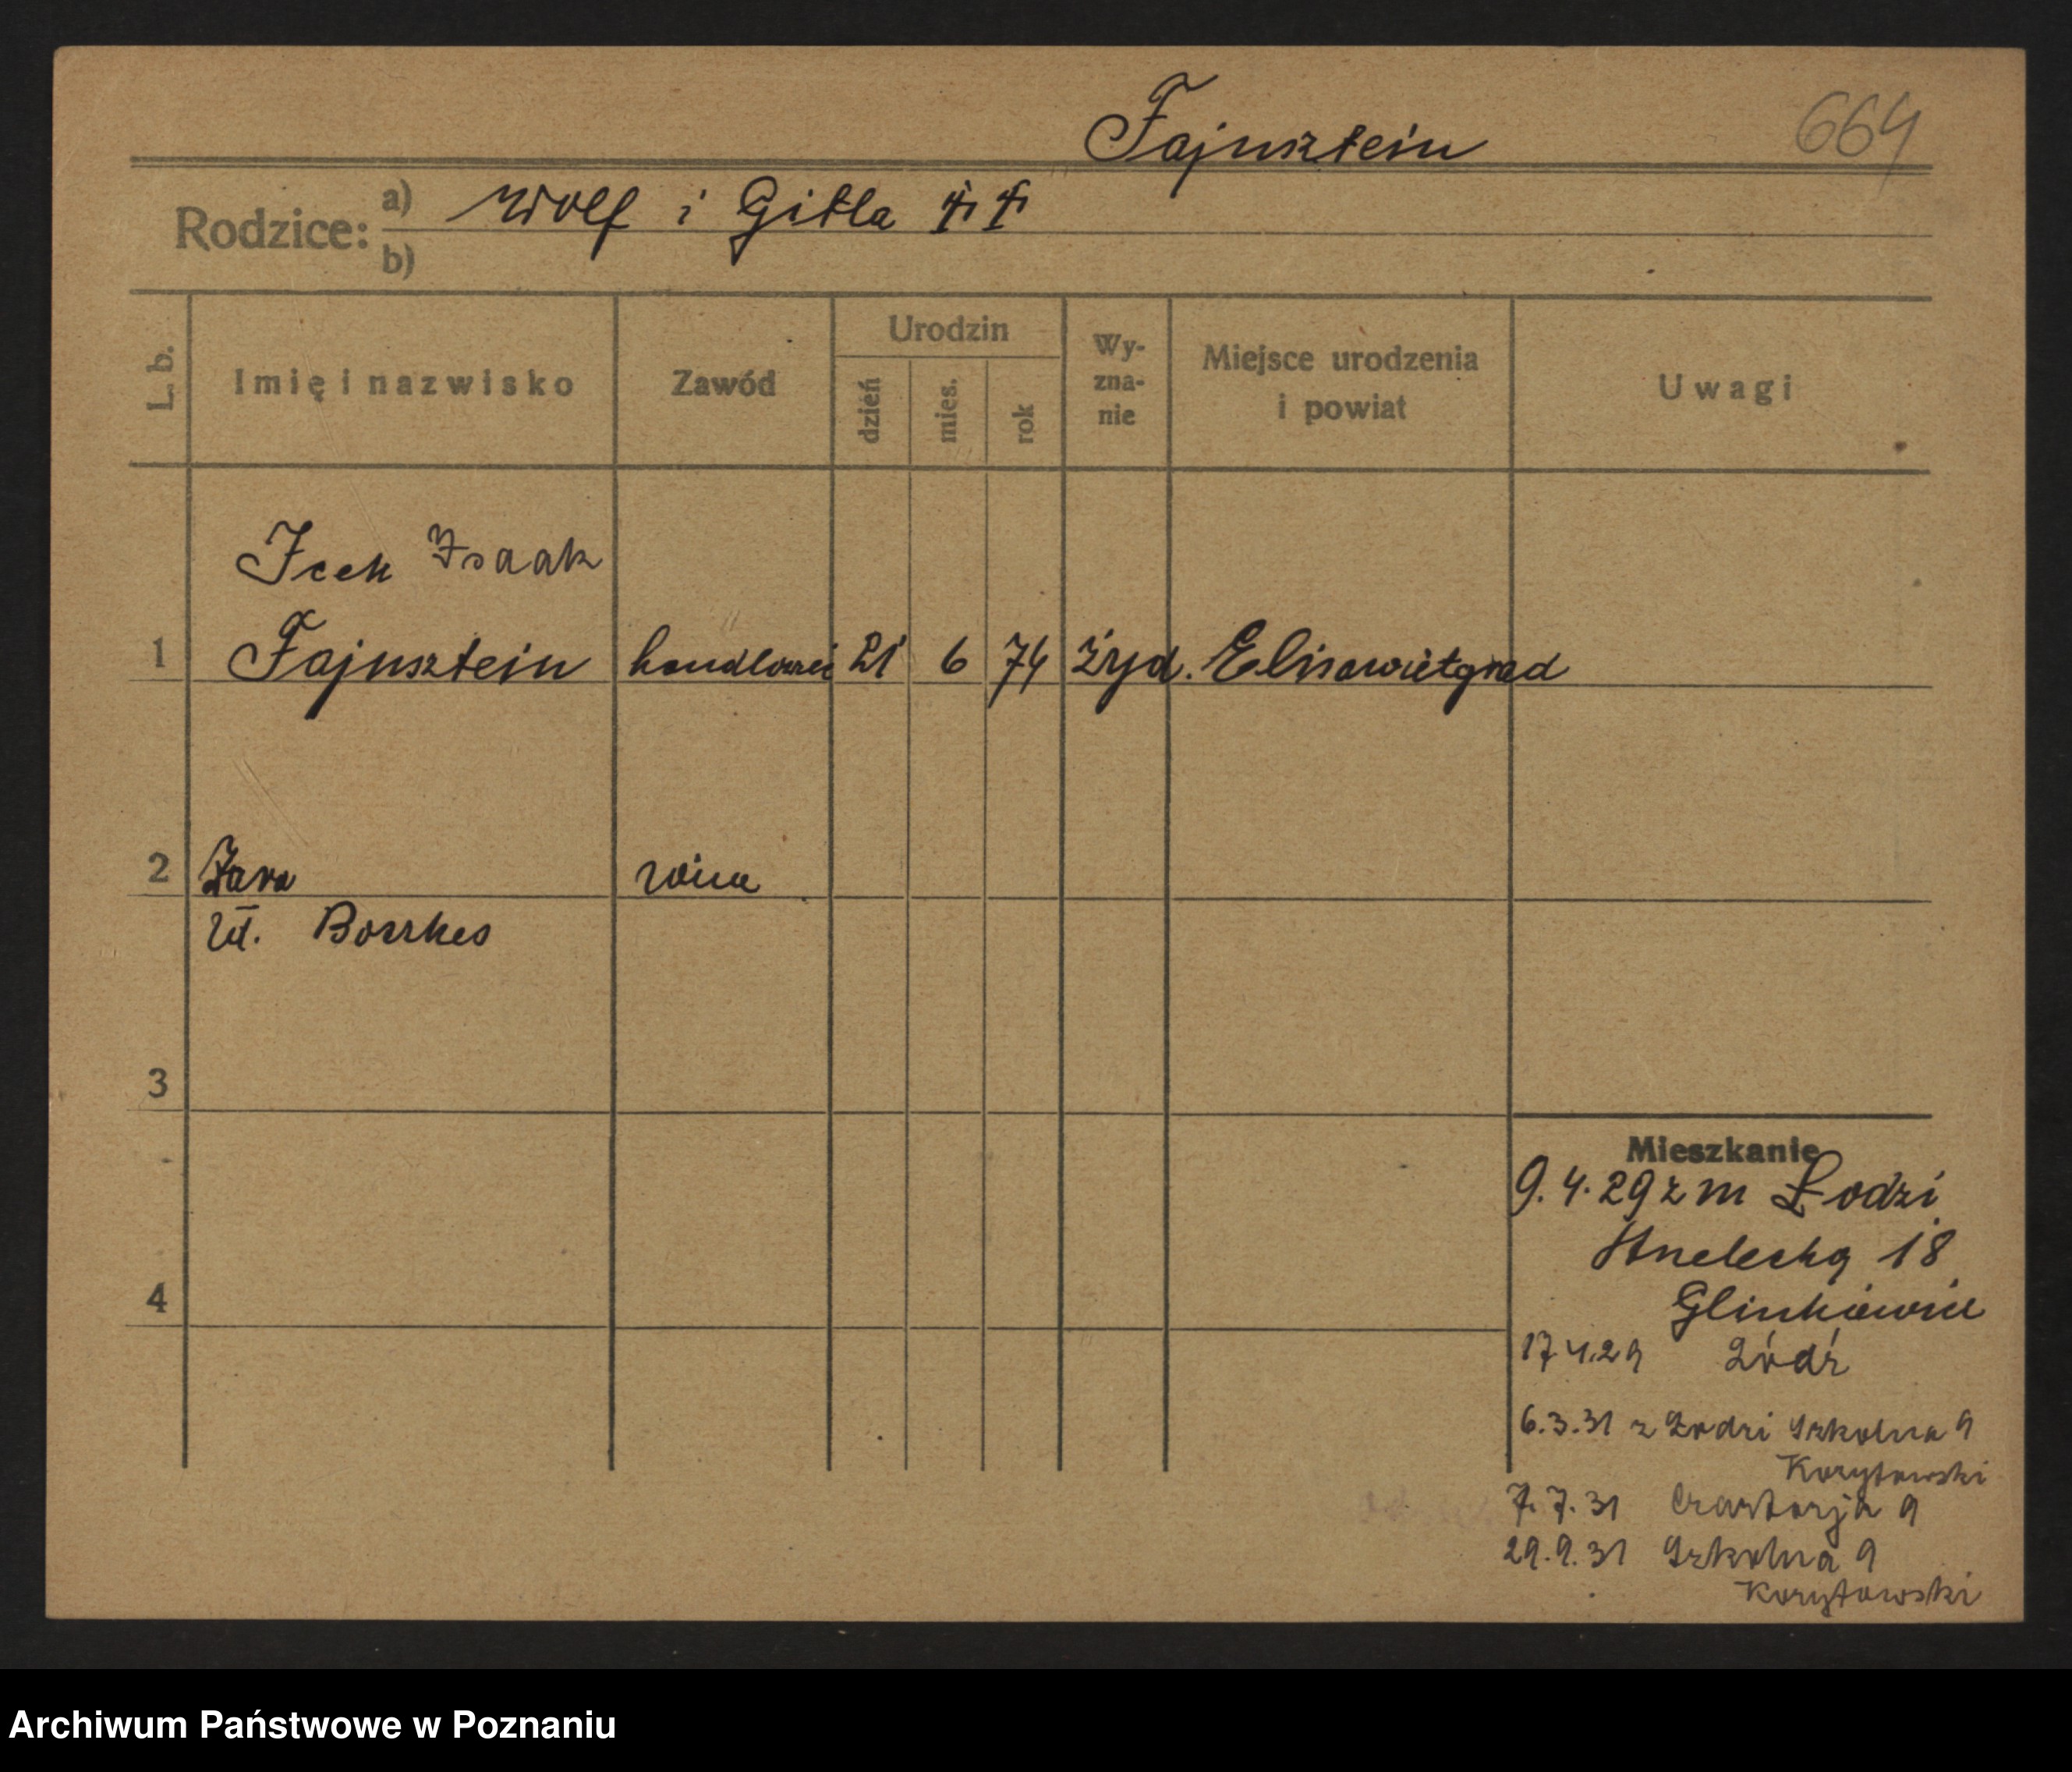 Fajnsztein
664
Rodzice: a) Wolf i Gitla
b)
L. b.
Imię i nazwisko
Zawód
Urodzin
dzień
mies.
rok
Wy-
zna-
nie
Miejsce urodzenia
i powiat
Uwagi
Icek Isaak
1 Fajnsztein 21 6 74 żyd. Elisawietgrad
2
Borrkes
3
4
Mieszkanie
9.4.29 z m Łodzi
18
17 4.29 Łódź
6.3.31 z Łodzi Szkolna 9
Korytowski
7.7.31 9
29.9.31 Szkolna 9
Korytowski
Archiwum Państwowe w Poznaniu